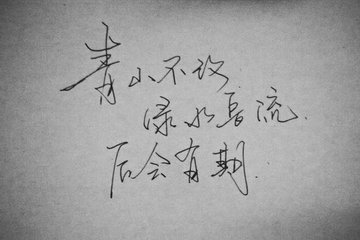 青山不改
绿水長流.
后会有期.